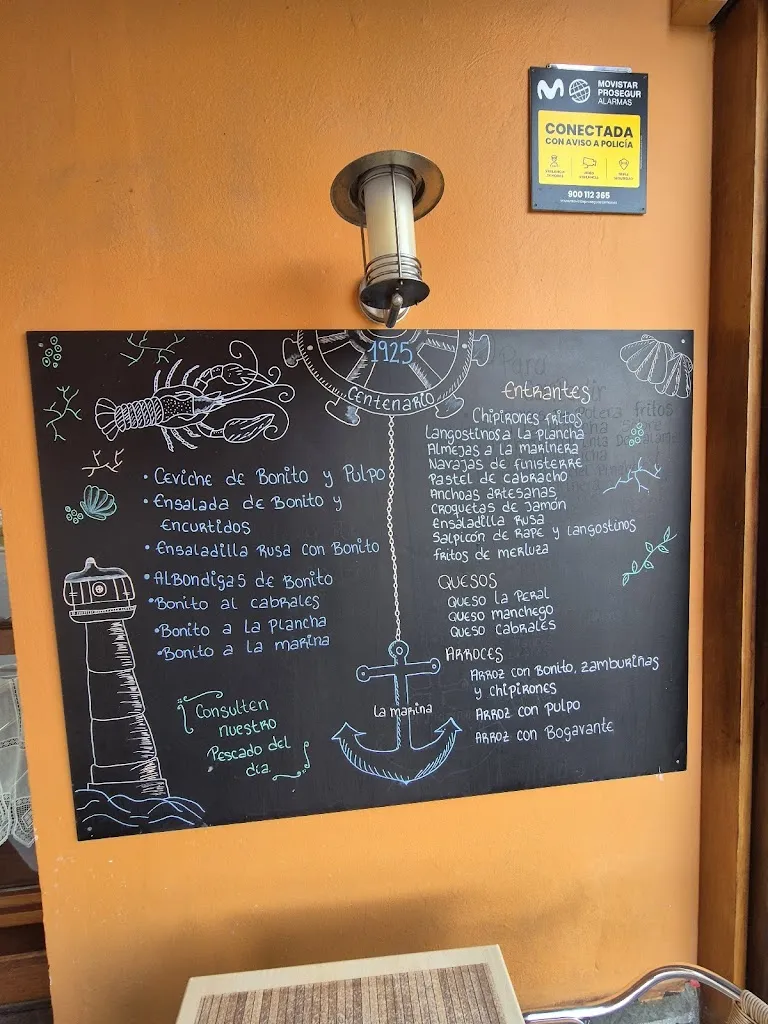 MOVISTAR
PROSEGUR
ALARMAS
CONECTADA
CON AVISO A POLICÍA
900 112 365
1925
CENTENARIO
• Ceviche de Bonito y Pulpo
• Ensalada de Bonito y
encurtidos
• Ensaladilla Rusa con Bonito
• Albondigas de Bonito
• Bonito al cabrales
• Bonito a la Plancha
• Bonito a la marina
Consulten
nuestro
Pescado del
día
La marina
Entrantes
Chipirones fritos
Langostinos a la plancha
Almejas a la marinera
Navajas de finisterre
Pastel de cabracho
Anchoas artesanas
Croquetas de jamón
Ensaladilla Rusa
Salpicón de Rape y langostinos
fritos de merluza
QUESOS
Queso la Peral
Queso manchego
Queso Cabrales
ARROCES
Arroz con Bonito, zamburiñas
y chipirones
Arroz con Pulpo
Arroz con Bogavante